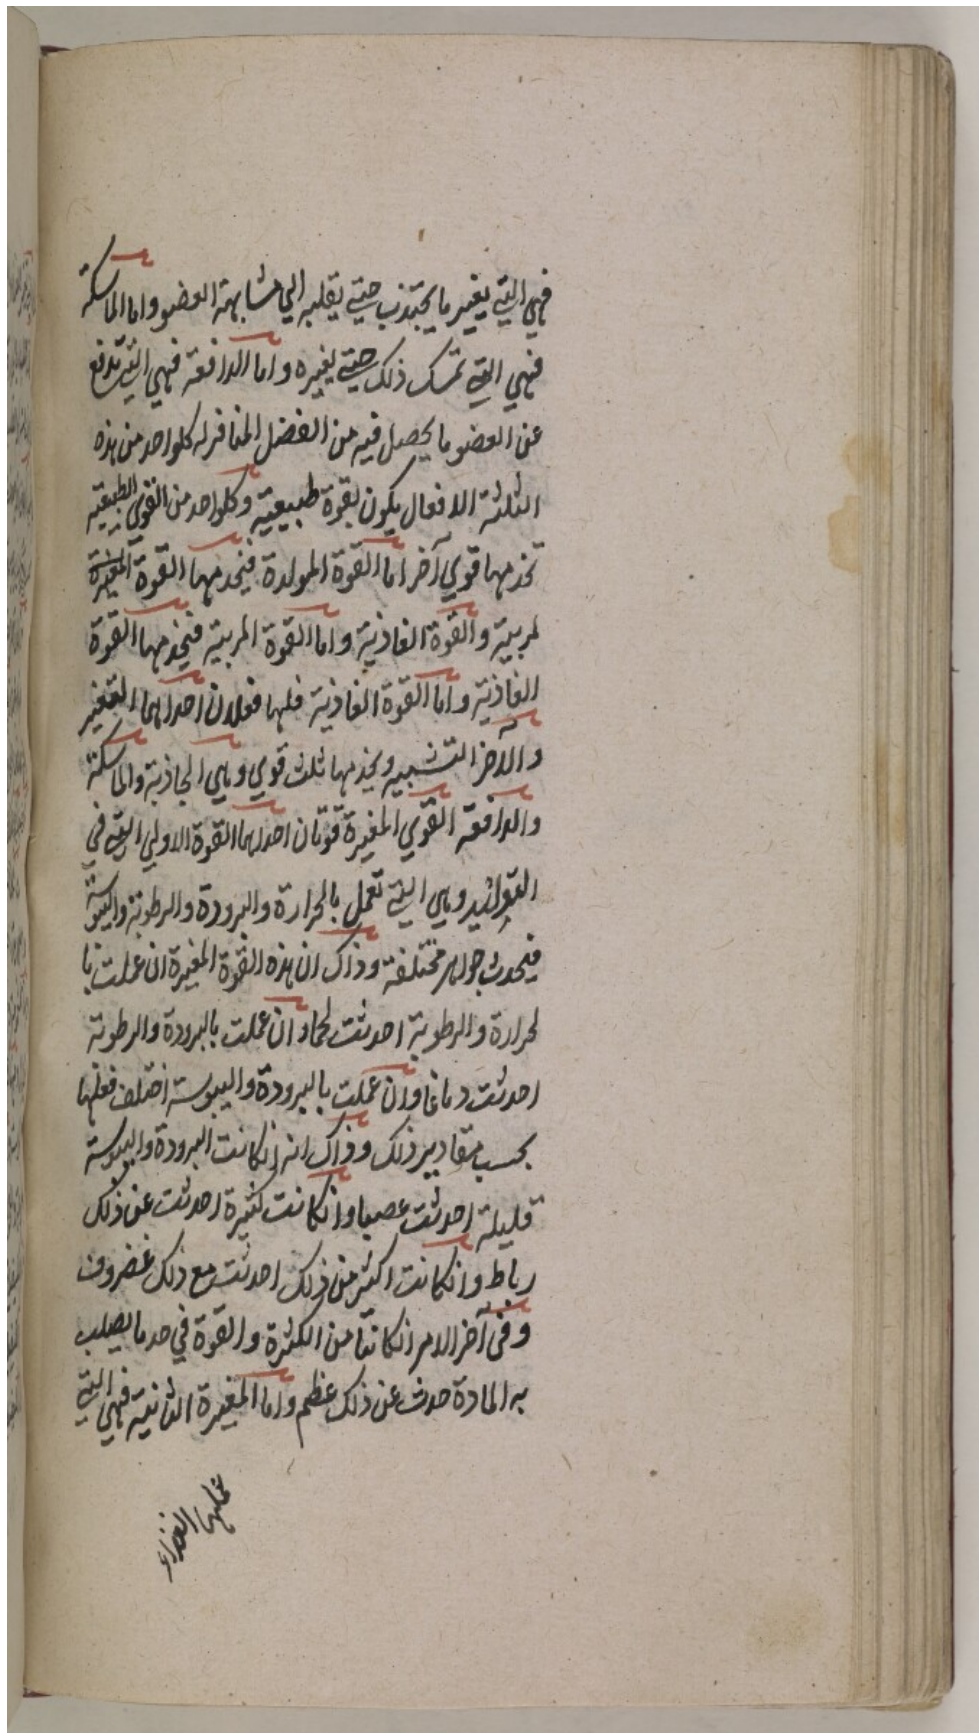 فهي التي يغير ما يجتذب حتي يقلبه الي مشابهة العضو واما الماسكة
فهي التي تمسك ذلك حتي يغيره واما الدافعة فهي التي تدفع
عن العضو ما يحصل فيه من الفضل المنافر له كلواحد من هذه
الثلثة الافعال يكون بقوة طبيعية وكلواحد من القوي الطبيعية
تخدمها قوي آخر اما القوة المولدة فيخدمها القوة المغيرة
لمربية والقوة الغاذية واما القوة المربية فيخدمها القوة
الغاذية واما القوة الغاذية فلها فعلان احداهما التغير
والآخر التشبيه ويخدمها ثلث قوي وهي الجاذبة والماسكة
والدافعة القوي المغيرة قوتان احداهما القوة الاولي التي في
التوليد وهي التي تعمل بالحرارة والبرودة والرطوبة واليبوسة
فيحدث جواهر مختلفة وذاك ان هذه القوة المغيرة ان عملت با
لحرارة والرطوبة احدثت لحما وان عملت بالبرودة والرطوبة
احدثت دماغا وان عملت بالبرودة واليبوسة اختلف فعلها
بحسب مقادير ذلك وذاك انه انكانت البرودة واليبوسة
قليلة احدثت عصبا وانكانت كثيرة احدثت عن ذلك
رباط وانكانت اكثر من ذلك احدثت مع ذلك غضروف
وفي آخر الامر انكانتا من الكثرة والقوة في حد ما يصلب
به المادة حدث عن ذلك عظم واما المغيرة الثانية فهي التي
عملها الغذاء